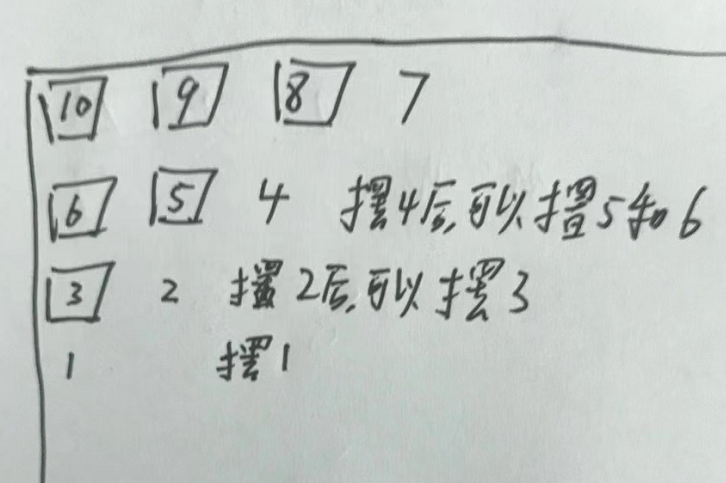 10 9 8 7
6 5 4 摆4后,可以摆5和6
3 2 摆2后,可以摆3
1 摆1